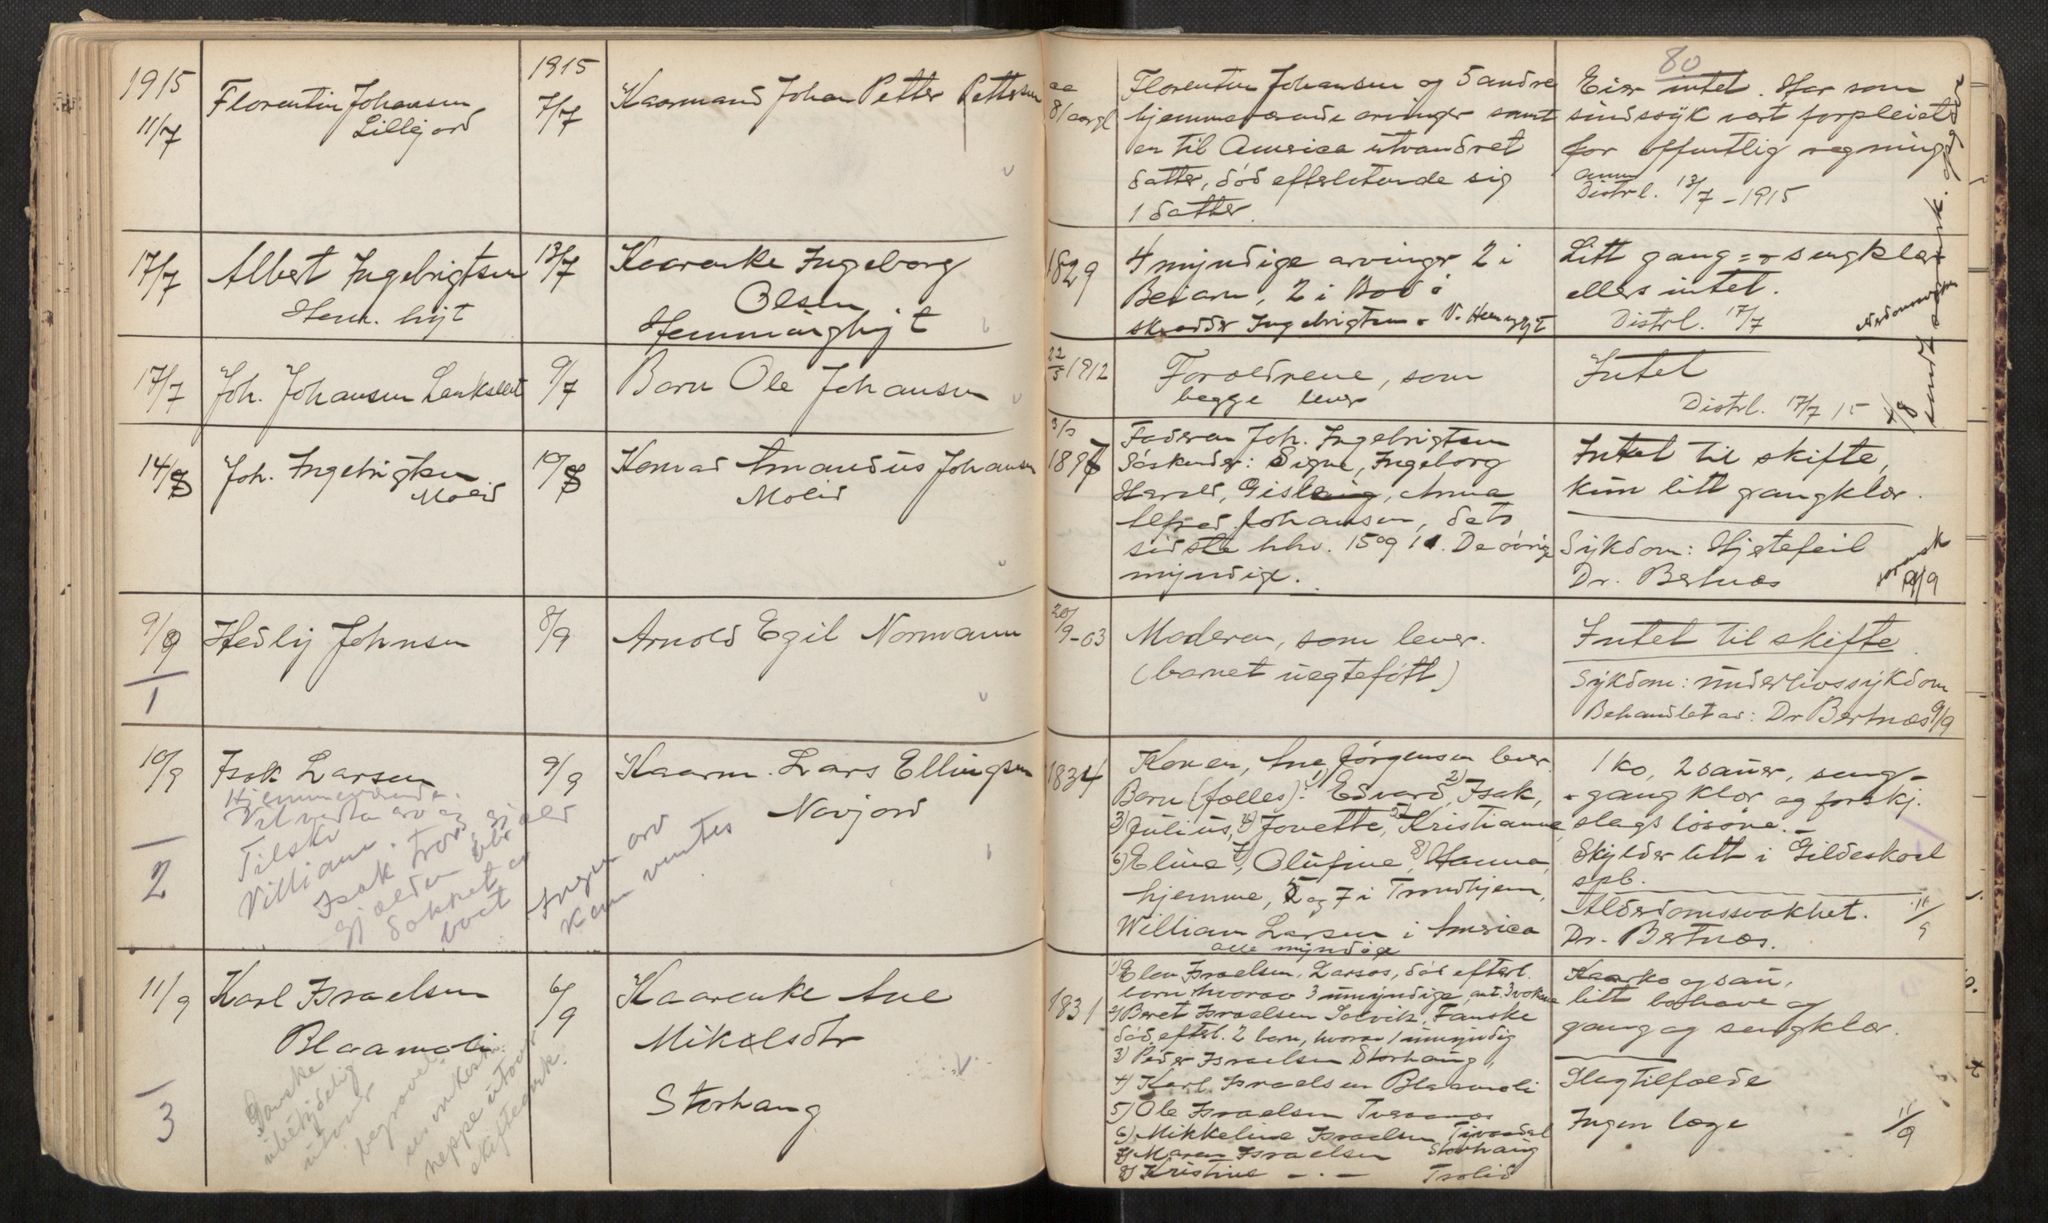 80
1915
11/7
Florentin Johansen
Lillejord
1915
7/7
Kaarmand Johan Petter Pettersen
ca
81 aargl
Florentin Johansen og 5 andre
hjemmeværende arvinger samt
en til America utvandret
datter, død efterlatende sig
1 datter.
Eier intet. Har som
sindssyk vært forpleiet
for offentlig regning
Distrl. 13/7 - 1915
17/7
Albert Ingebrigtsen
Hem. hyt
13/7
Kaarenke Ingeborg
Olsen
Hemminghyt
1829
4 myndige arvinger 2 i
Beiarn, 2 i Bodø
skrædder Ingebrigtsen
Litt gang = og sengklær
ellers intet.
Distrl. 17/7
17/7
Joh. Johansen
9/7
Barn Ole Johansen
22/5 1912
Forældrene, som
begge lever
Intet
Distrl. 17/7 15
14/8
Joh. Ingebrigtsen
Molid
10/8
Konrad Amandus Johansen
Molid
1897
Faderen Joh. Ingebrigtsen
Søskender: Signe, Ingeborg
Harald, Gisle, Anna
Alfred Johansen, de to
sidste hhv. 15 og 11. De øvrige
myndige.
Intet til skifte,
kun litt gangklær.
Sykdom: Hjertefeil
Dr. Bertnæs
9/9
9/9
1
Hedly Johnsen
8/9
Arnold Egil Normann
20/9-03
Moderen, som lever.
(barnet uegtefött)
Intet til skifte
Sykdom: underlivssykdom
Behandlet av: Dr Bertnæs 9/9
10/9
2
Isak Larsen
Hjemmeværende.
Tilsko
Villiam.
Isak tror
Gjælden blir
dækket av
boet
Ingen arv
kan ventes
9/9
Kaarm. Lars Ellingsen
Novjord
1834
Konen, Ane Jørgensen lever.
Barn (fælles): 1) Edvard, 2) Isak,
3) Julius, 4) Jovette, 5) Kristianne,
6) Eline, 7) Olufine, 8) Hanna,
hjemme, 5 og 7 i Trondhjem,
William Larsen i America
alle myndige
1 ko, 2 sauer, seng-
gangklær og forskj.
slags løsøre.
Skylder litt i Gildeskaal
spb.
Alderdomssvakhet.
Dr. Bertnæs.
11/9
11/9
3
Karl Israelsen
Blaamoli
Ganske
ubetydelig
utover
begravel.
neppe utover
skiftegark.
6/9
Kaarenke Ane
Mikalsdtr
Storhaug
1831
1) Elen Israelsen, Larsos, død efterl.
barn hvorav 3 umyndige, ant. 3 voksne
2) Beret Israelsen Solvik, Fauske
død, efterl. 2 barn, hvorav 1 umyndig
3) Peder Israelsen Storhaug,
4) Karl Israelsen Blaamoli
5) Ole Israelsen
6) Mikkeline Israelsen
7) Maren Israelsen Storhaug
8) Kristine - . - Trolid
ko og sau,
litt bohave og
gang og sengklær.
Slagtilfælde
Ingen læge
11/9